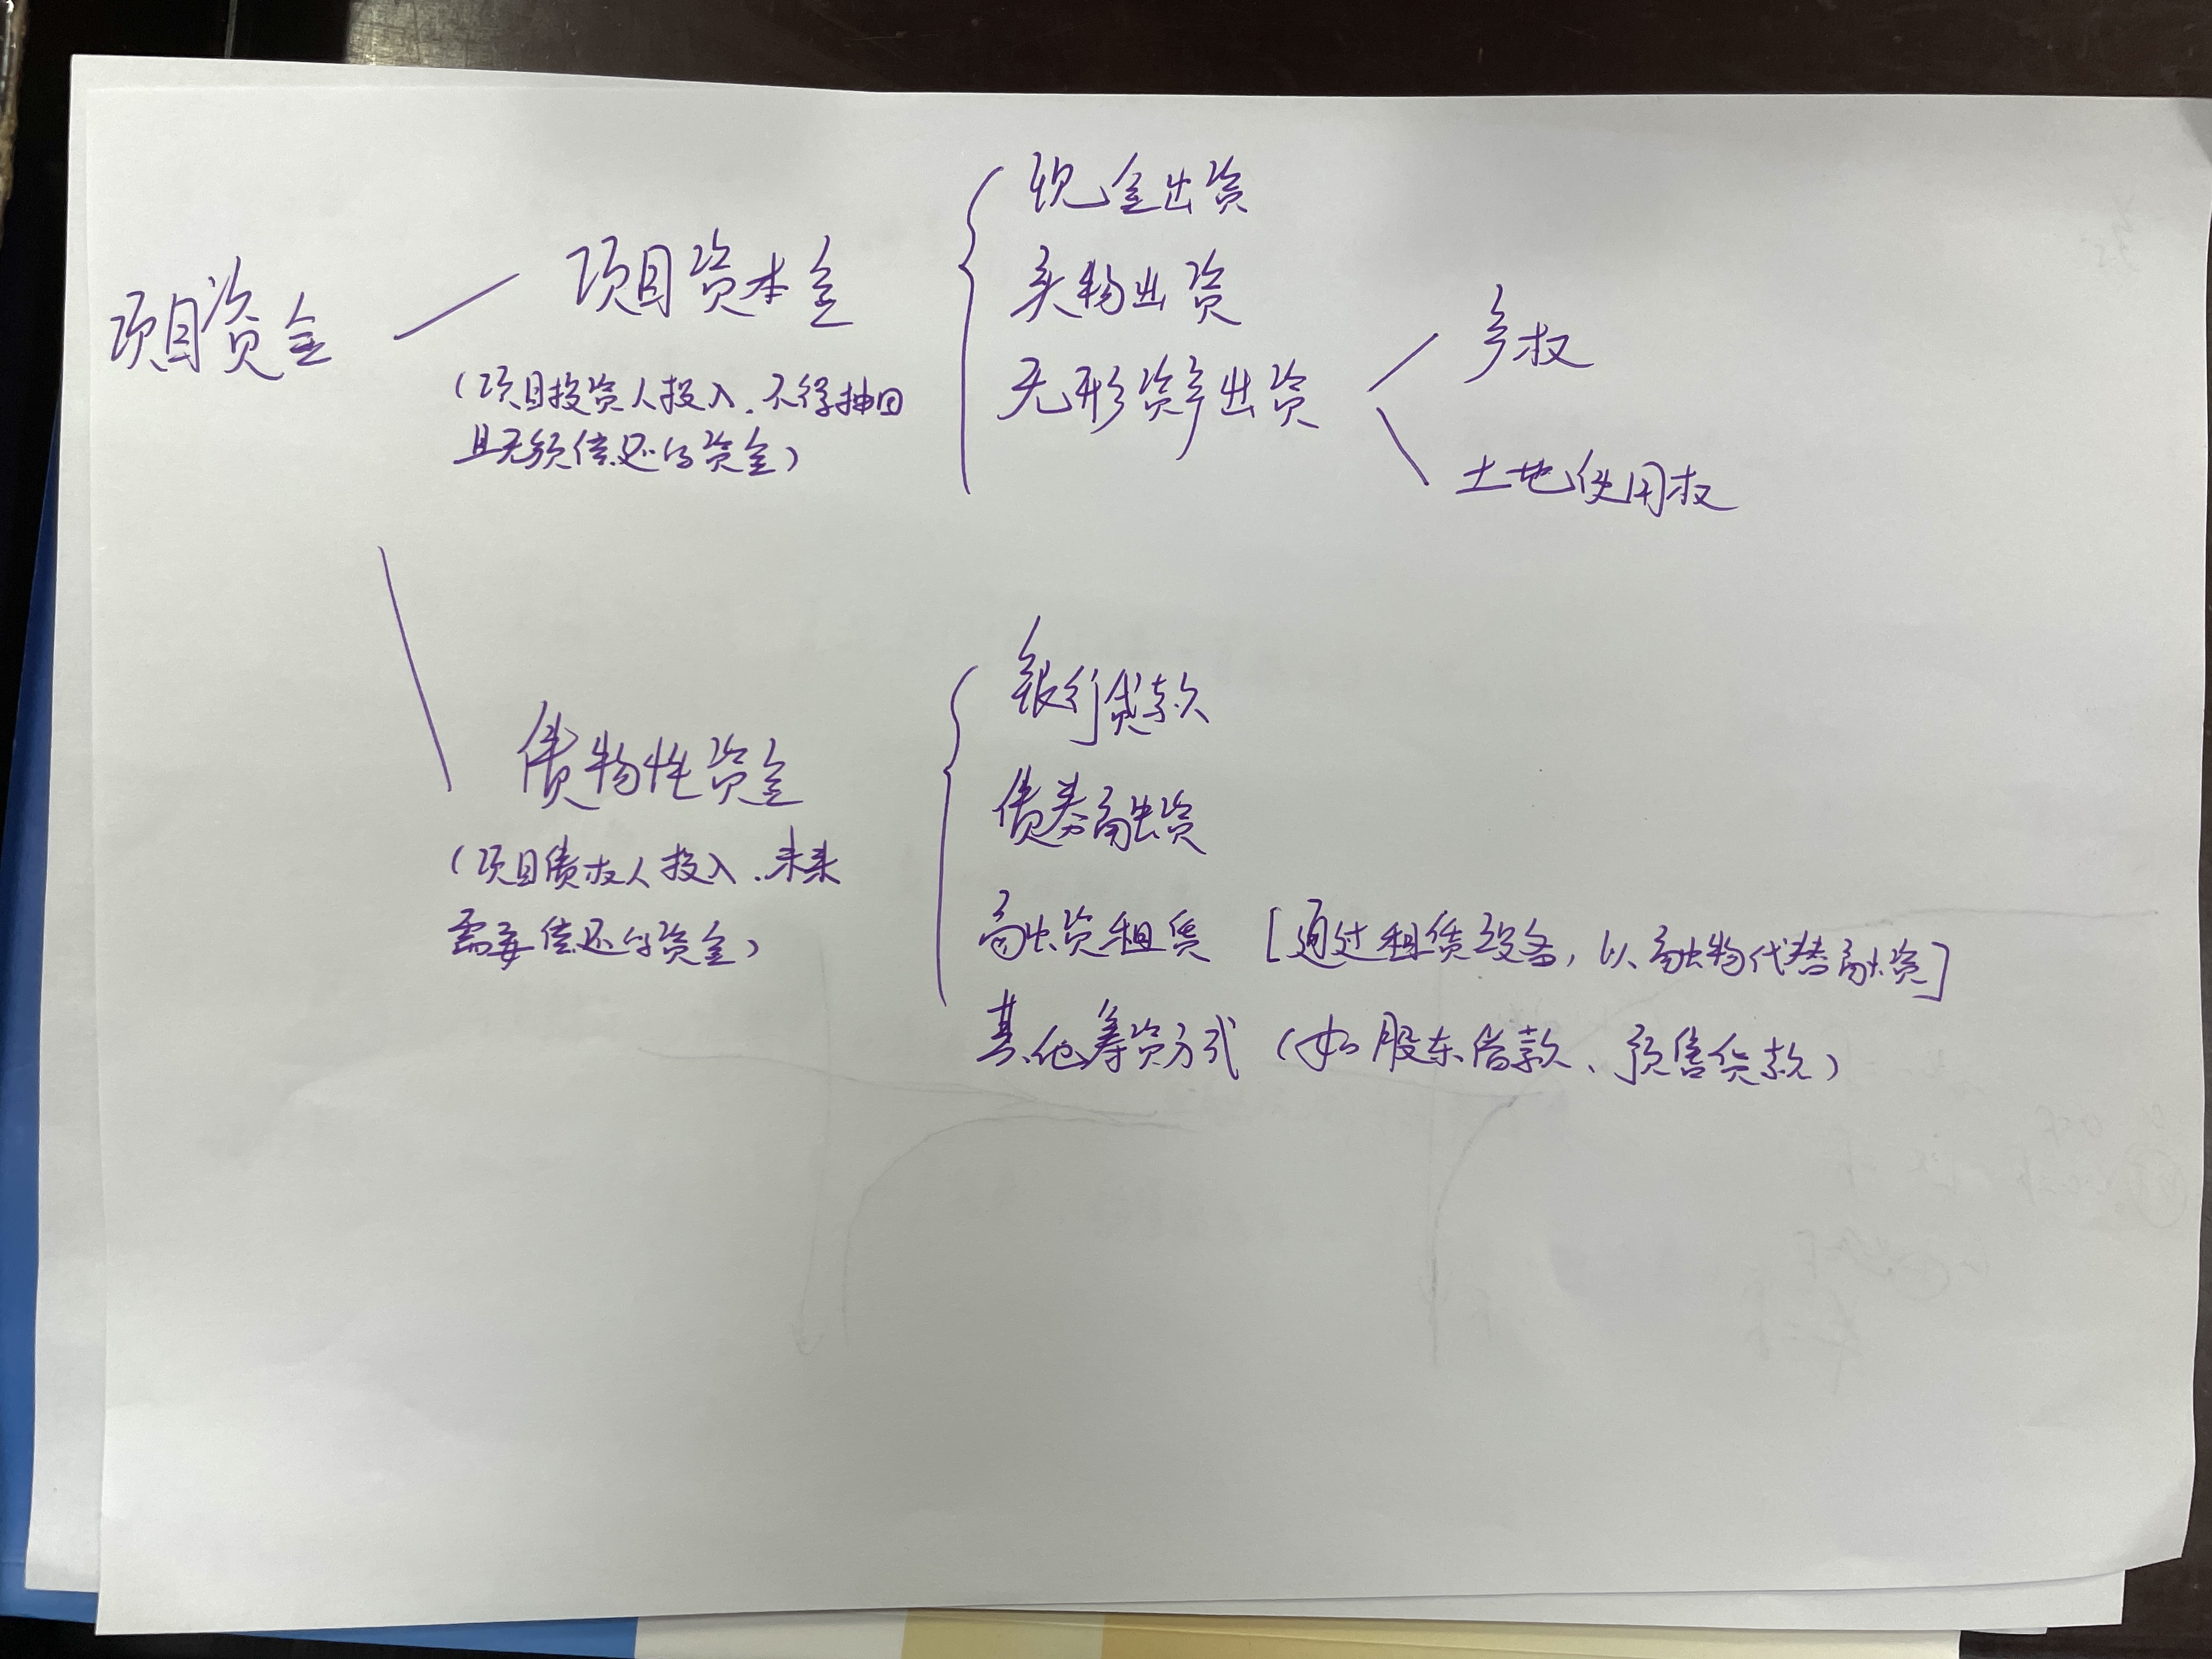 项目资金
项目资本金
(项目投资人投入.不得抽回
且无须偿还的资金)
现金出资
实物出资
无形资产出资
产权
土地使用权
债物性资金
(项目债权人投入.未来
需要偿还的资金)
银行贷款
债券融资
融资租赁 [通过租赁设备,以融物代替融资]
其他筹资方式 (如股东借款、预售货款)